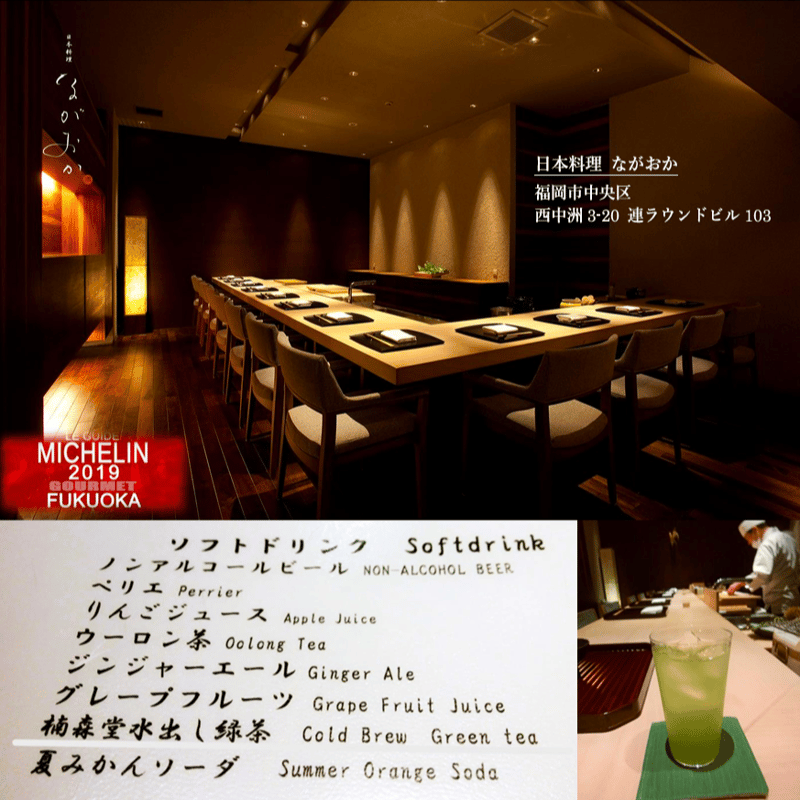 日本料理
ながおか
日本料理 ながおか
福岡市中央区
西中洲 3-20 連ラウンドビル 103
LE GUIDE
MICHELIN
2019
GOURMET
FUKUOKA
ソフトドリンク Softdrink
ノンアルコールビール NON-ALCOHOL BEER
ペリエ Perrier
りんごジュース Apple Juice
ウーロン茶 Oolong Tea
ジンジャーエール Ginger Ale
グレープフルーツ Grape Fruit Juice
楠森堂水出し緑茶 Cold Brew Green tea
夏みかんソーダ Summer Orange Soda